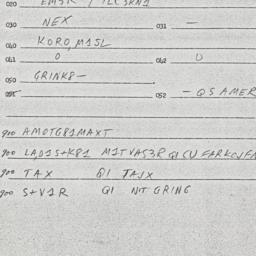 020 EM3R / ILL3RN1
030 NEX 031 —
040 KORO, M1SL
041 0 042 0
050 GRINK8—
052 — QS AMER
900 AMOTG81MAXT
900 LAD1S+K81 M1TVAS3R Q1 CU FARKCVFN
900 TAX Q1 TAJX
900 S+V1R Q1 NT GRING